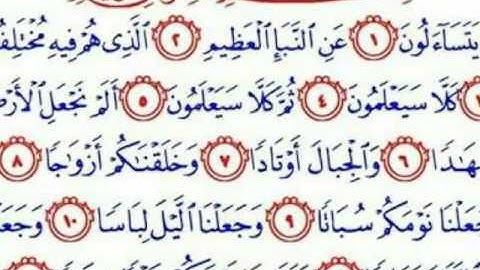 يَتَسَآءَلُونَ ١ عَنِ ٱلنَّبَإِ ٱلْعَظِيمِ ٢ ٱلَّذِى هُمْ فِيهِ مُخْتَلِفُ
كَلَّا سَيَعْلَمُونَ ٤ ثُمَّ كَلَّا سَيَعْلَمُونَ ٥ أَلَمْ نَجْعَلِ ٱلْأَرْضَ
مِهَٰدًا ٦ وَٱلْجِبَالَ أَوْتَادًا ٧ وَخَلَقْنَٰكُمْ أَزْوَٰجًا ٨
جَعَلْنَا نَوْمَكُمْ سُبَاتًا ٩ وَجَعَلْنَا ٱلَّيْلَ لِبَاسًا ١٠ وَجَعَ